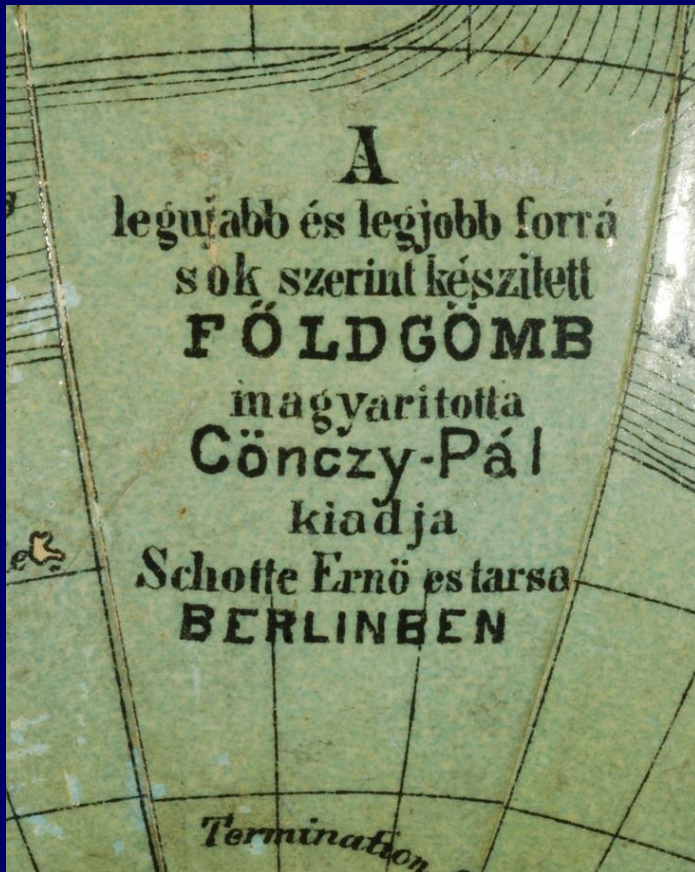 A
legujabb és legjobb forrá
sok szerint készitett
FŐLDGÖMB
magyaritotta
Cönczy-Pál
kiadja
Schotte Ernö es tarsa
BERLINBEN
Termination